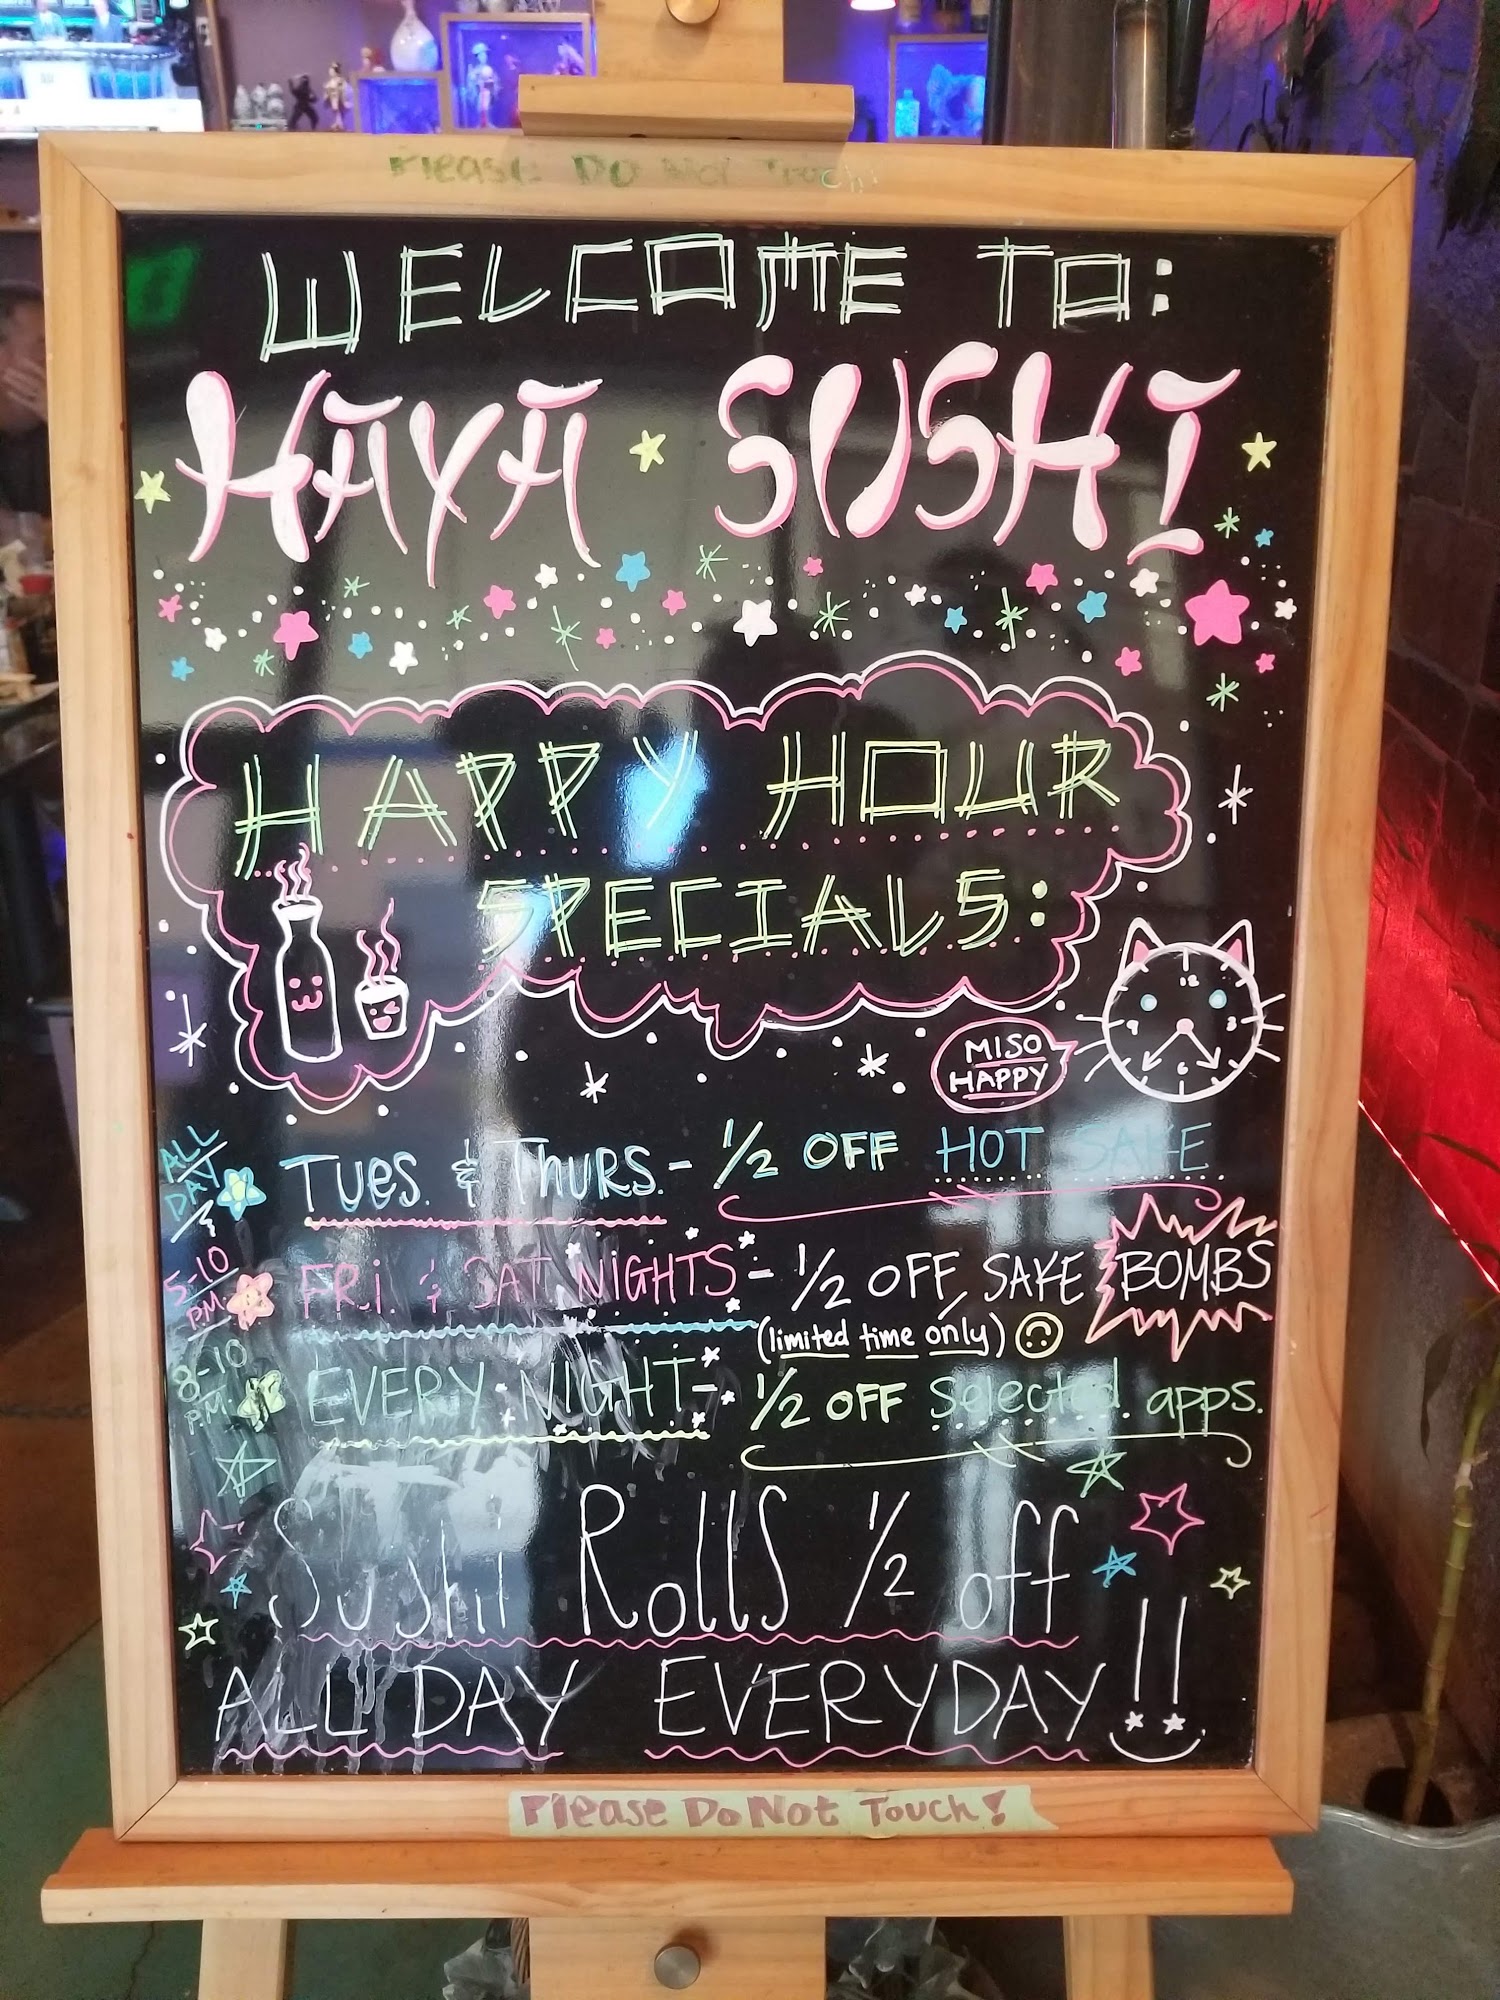 Please Do Not Touch!
WELCOME TO:
HAYA SUSHI
HAPPY HOUR
SPECIALS:
12
9 3
6
MISO
HAPPY
ALL
DAY
TUES. & THURS. - 1/2 OFF HOT SAKE
5-10
P.M.
FRi. & SAT. NiGHTS - 1/2 OFF SAKE BOMBS
(limited time only)
8-10
P.M.
EVERY NIGHT - 1/2 OFF selected apps.
Sushi Rolls 1/2 off
ALL DAY EVERYDAY!!
Please Do Not Touch!